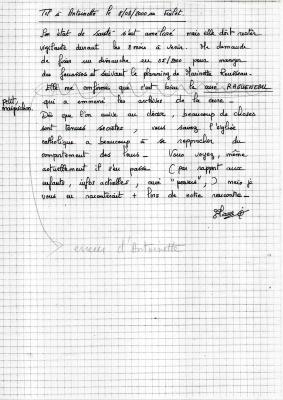 Tel à Antoinette le 8/03/2000 au
Son état de santé s'est amélioré mais elle doit rester
vigilante durant les 2 mois à venir. Me demande
de fixer un dimanche au 05/2000 pour manger
des et suivant le planning de Marinette Rousseau.
Elle me confirme que c'est bien le curé RAGUENEAU
petite, magouilleur.
qui a emmené les archives de la cure.
Dès que l'on arrive au décès, beaucoup de choses
sont tenues secrètes, vous savez l'église
catholique a beaucoup à se reprocher du
comportement des leurs. Vous voyez, même
actuellement il s'en passe (par rapport aux
enfants, infos actuelles, aussi "passées",) mais je
vous en raconterait + lors de notre rencontre.
erreur d'Antoinette